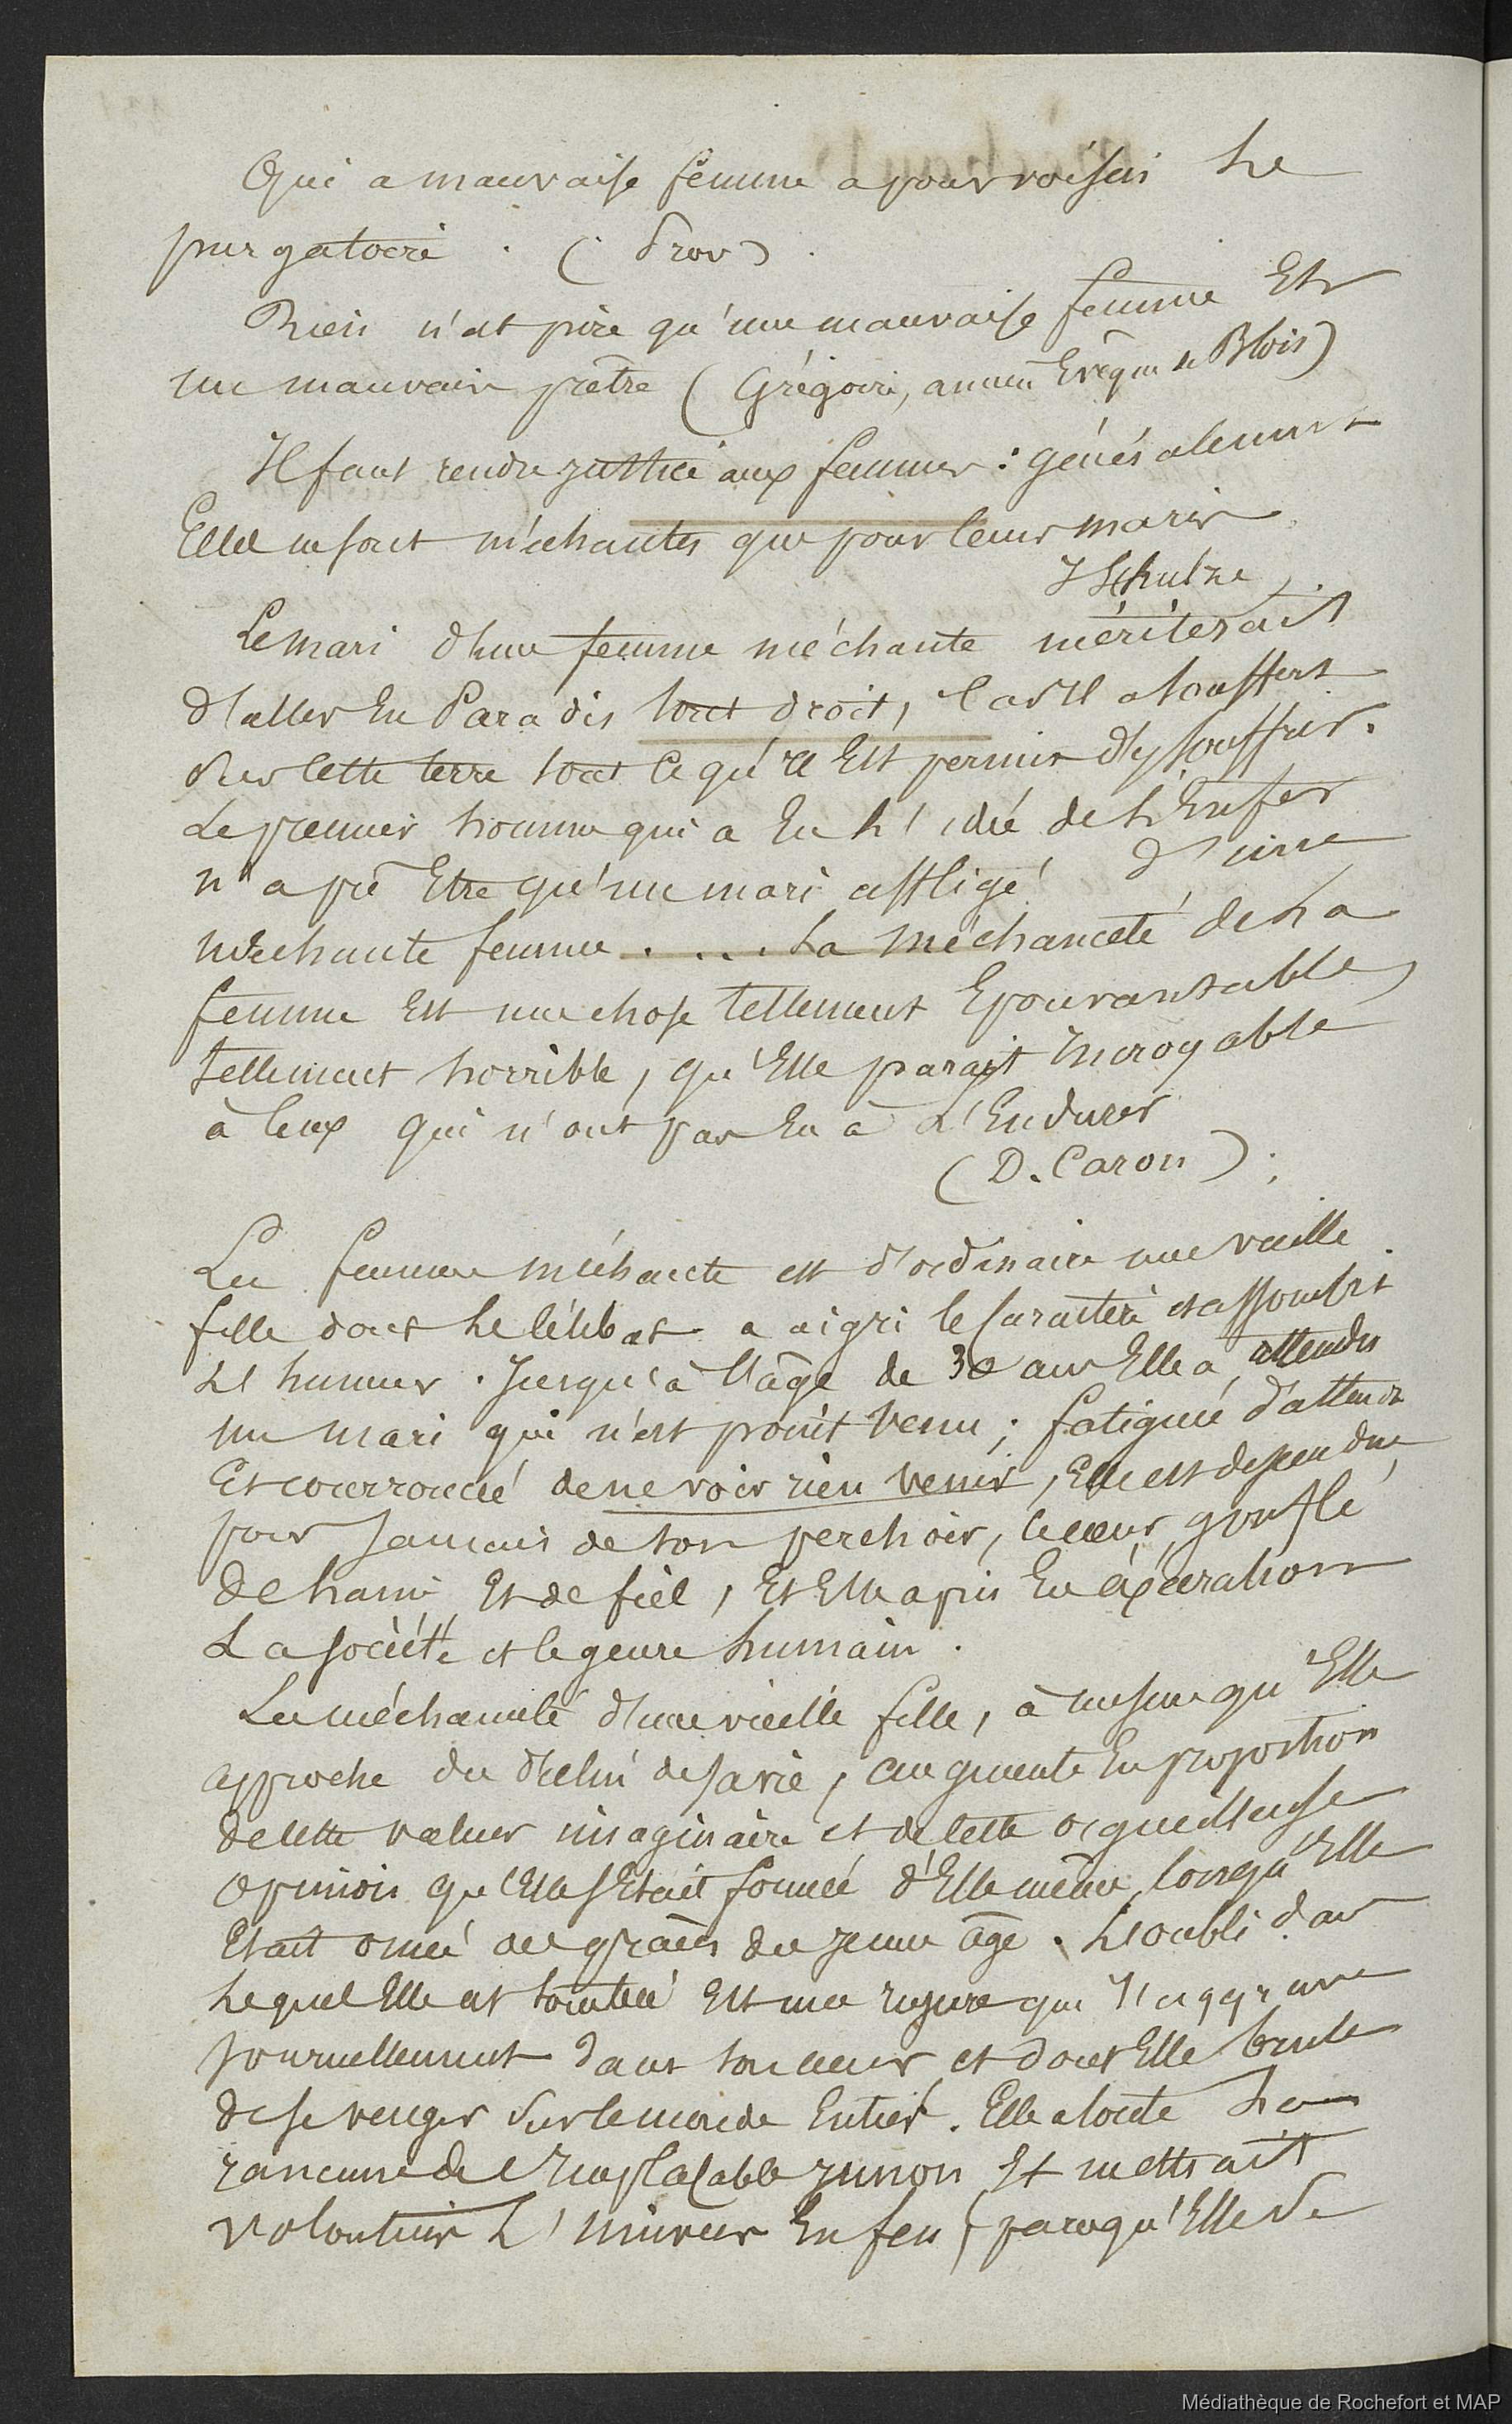 Qui a mauvaise femme a pour voisin Le
purgatoire . ( Prov )
Rien n'est pire qu'une mauvaise femme Et
un mauvais prêtre ( Grégoire, ancien Evêque de Blois )
Il faut rendre justice aux femmes : généralement
Elles ne sont méchantes que pour leurs maris
Le mari d'une femme méchante mériterait
d'aller En Paradis tout droit, Car Il a souffert
sur Cette terre tout Ce qu'il Est permis d'y souffrir.
Le premier homme qui a Eu L'idée de L'Enfer
n'a pu Etre qu'un mari affligé d'une
méchante femme . . . . La méchanceté de La
femme Est une chose tellement Epouvantable,
tellement horrible, qu'Elle parait Incroyable
à Ceux qui n'ont pas Eu à L'Endurer
( D. Caron ) ;
La femme méchante est d'ordinaire une vieille
fille dont Le Célibat a aigri le Caractère et assombri
L'humeur . Jusqu'à l'âge de 30 ans Elle a attendu
un mari qui n'est point Venu ; fatiguée d'attendre
Et courroucée de ne voir rien Venir, Elle est descendue
pour Jamais de son perchoir, le cœur gonflé
de haine Et de fiel, Et Elle a pris En éxécration
La société et le genre humain .
La méchanceté d'une vieille fille, à mesure qu'Elle
approche du déclin de sa vie, augmente En proportion
de cette valeur imaginaire et de Cette orgueilleuse
opinion qu'Elle s'Etait formée d'Elle même lorsqu'Elle
Etait ornée des grâces du jeune âge . L'oubli dans
Lequel Elle est tombée Est une injure qui s'aggrave
journellement dans son cœur et dont Elle brule
de se venger sur le monde Entier . Elle a toute La
rancune de L'Implacable Junon Et mettrait
volontiers L'univers En feu, parcequ'Elle se
Médiathèque de Rochefort et MAP